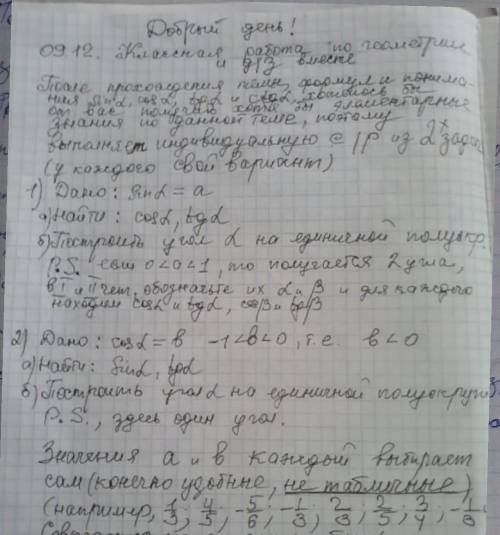 Добрый день!
09.12. Классная работа по геометрии
и д/з вместе
После прохождения темы, формул и понима-
ния sinα, cosα, tgα и ctgα, хотелось бы
от вас получить хотя бы элементарные
знания по данной теме, поэтому
выполняет индивидуальную с/р из 2х задач
(у каждого свой вариант)
1) Дано: sinα = a
а) Найти: cosα, tgα
б) Построить угол α на единичной полуокр.
P.S. если 0<a<1, то получается 2 угла,
в I и II чет, обозначьте их α и β и для каждого
находим cosα и tgα, cosβ и tgβ
2) Дано: cosα = b -1<b<0, т.е. b<0
а) Найти: sinα, tgα
б) Построить угол α на единичной полуокружн
P.S., здесь один угол.
Значения a и b каждый выбирает
сам (конечно удобные, не табличные)
(например, 1/3; 4/5; -5/6; -1/3; 2/3; 2/5; 3/4; -1/3